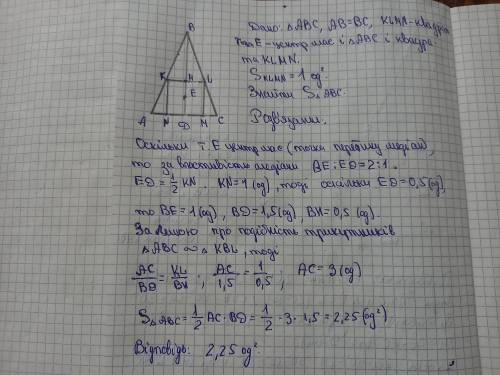 B
K H L
E
A N D M C
Дано: △ABC, AB=BC, KLMN-квадрат
т.E-центр мас і △ABC і квадра-
та KLMN.
S KLMN = 1 од².
Знайти S△ABC.
Розв'язання.
Оскільки т.E центр мас (точка перетину медіан)
то за властивістю медіани BE:ED=2:1.
ED=1/2 KN. KN=1(од), тоді оскільки ED=0,5(од),
то BE=1(од), BD=1,5(од), BH=0,5 (од).
За лемою про подібність трикутників
△ABC ∾ △KBL, тоді
AC/BD = KL/BH ; AC/1,5 = 1/0,5 ; AC=3(од)
S△ABC = 1/2 AC·BD = 1/2·3·1,5 = 2,25(од²)
Відповідь: 2,25 од².